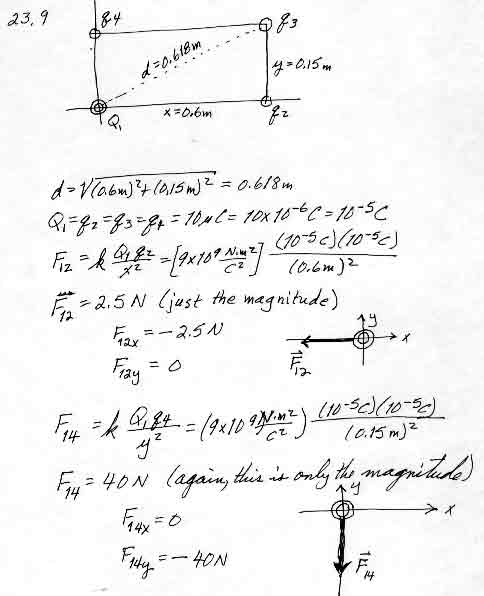 23.9
q4
q3
d=0.618m
y=0.15m
Q₁
x=0.6m
q2
d = √(0.6m)²+(0.15m)² = 0.618m
Q₁=q₂=q₃=q₄=10μC=10x10⁻⁶C=10⁻⁵C
F₁₂ = k Q₁q₂/x² = [9x10⁹ N·m²/C²] (10⁻⁵C)(10⁻⁵C)/(0.6m)²
F₁₂ = 2.5 N (just the magnitude)
F₁₂ₓ = -2.5N
F₁₂y = 0
y
x
F⃗₁₂
F₁₄ = k Q₁q₄/y² = (9x10⁹ N·m²/C²) (10⁻⁵C)(10⁻⁵C)/(0.15m)²
F₁₄ = 40N (again, this is only the magnitude)
F₁₄ₓ = 0
F₁₄y = -40N
y
x
F⃗₁₄